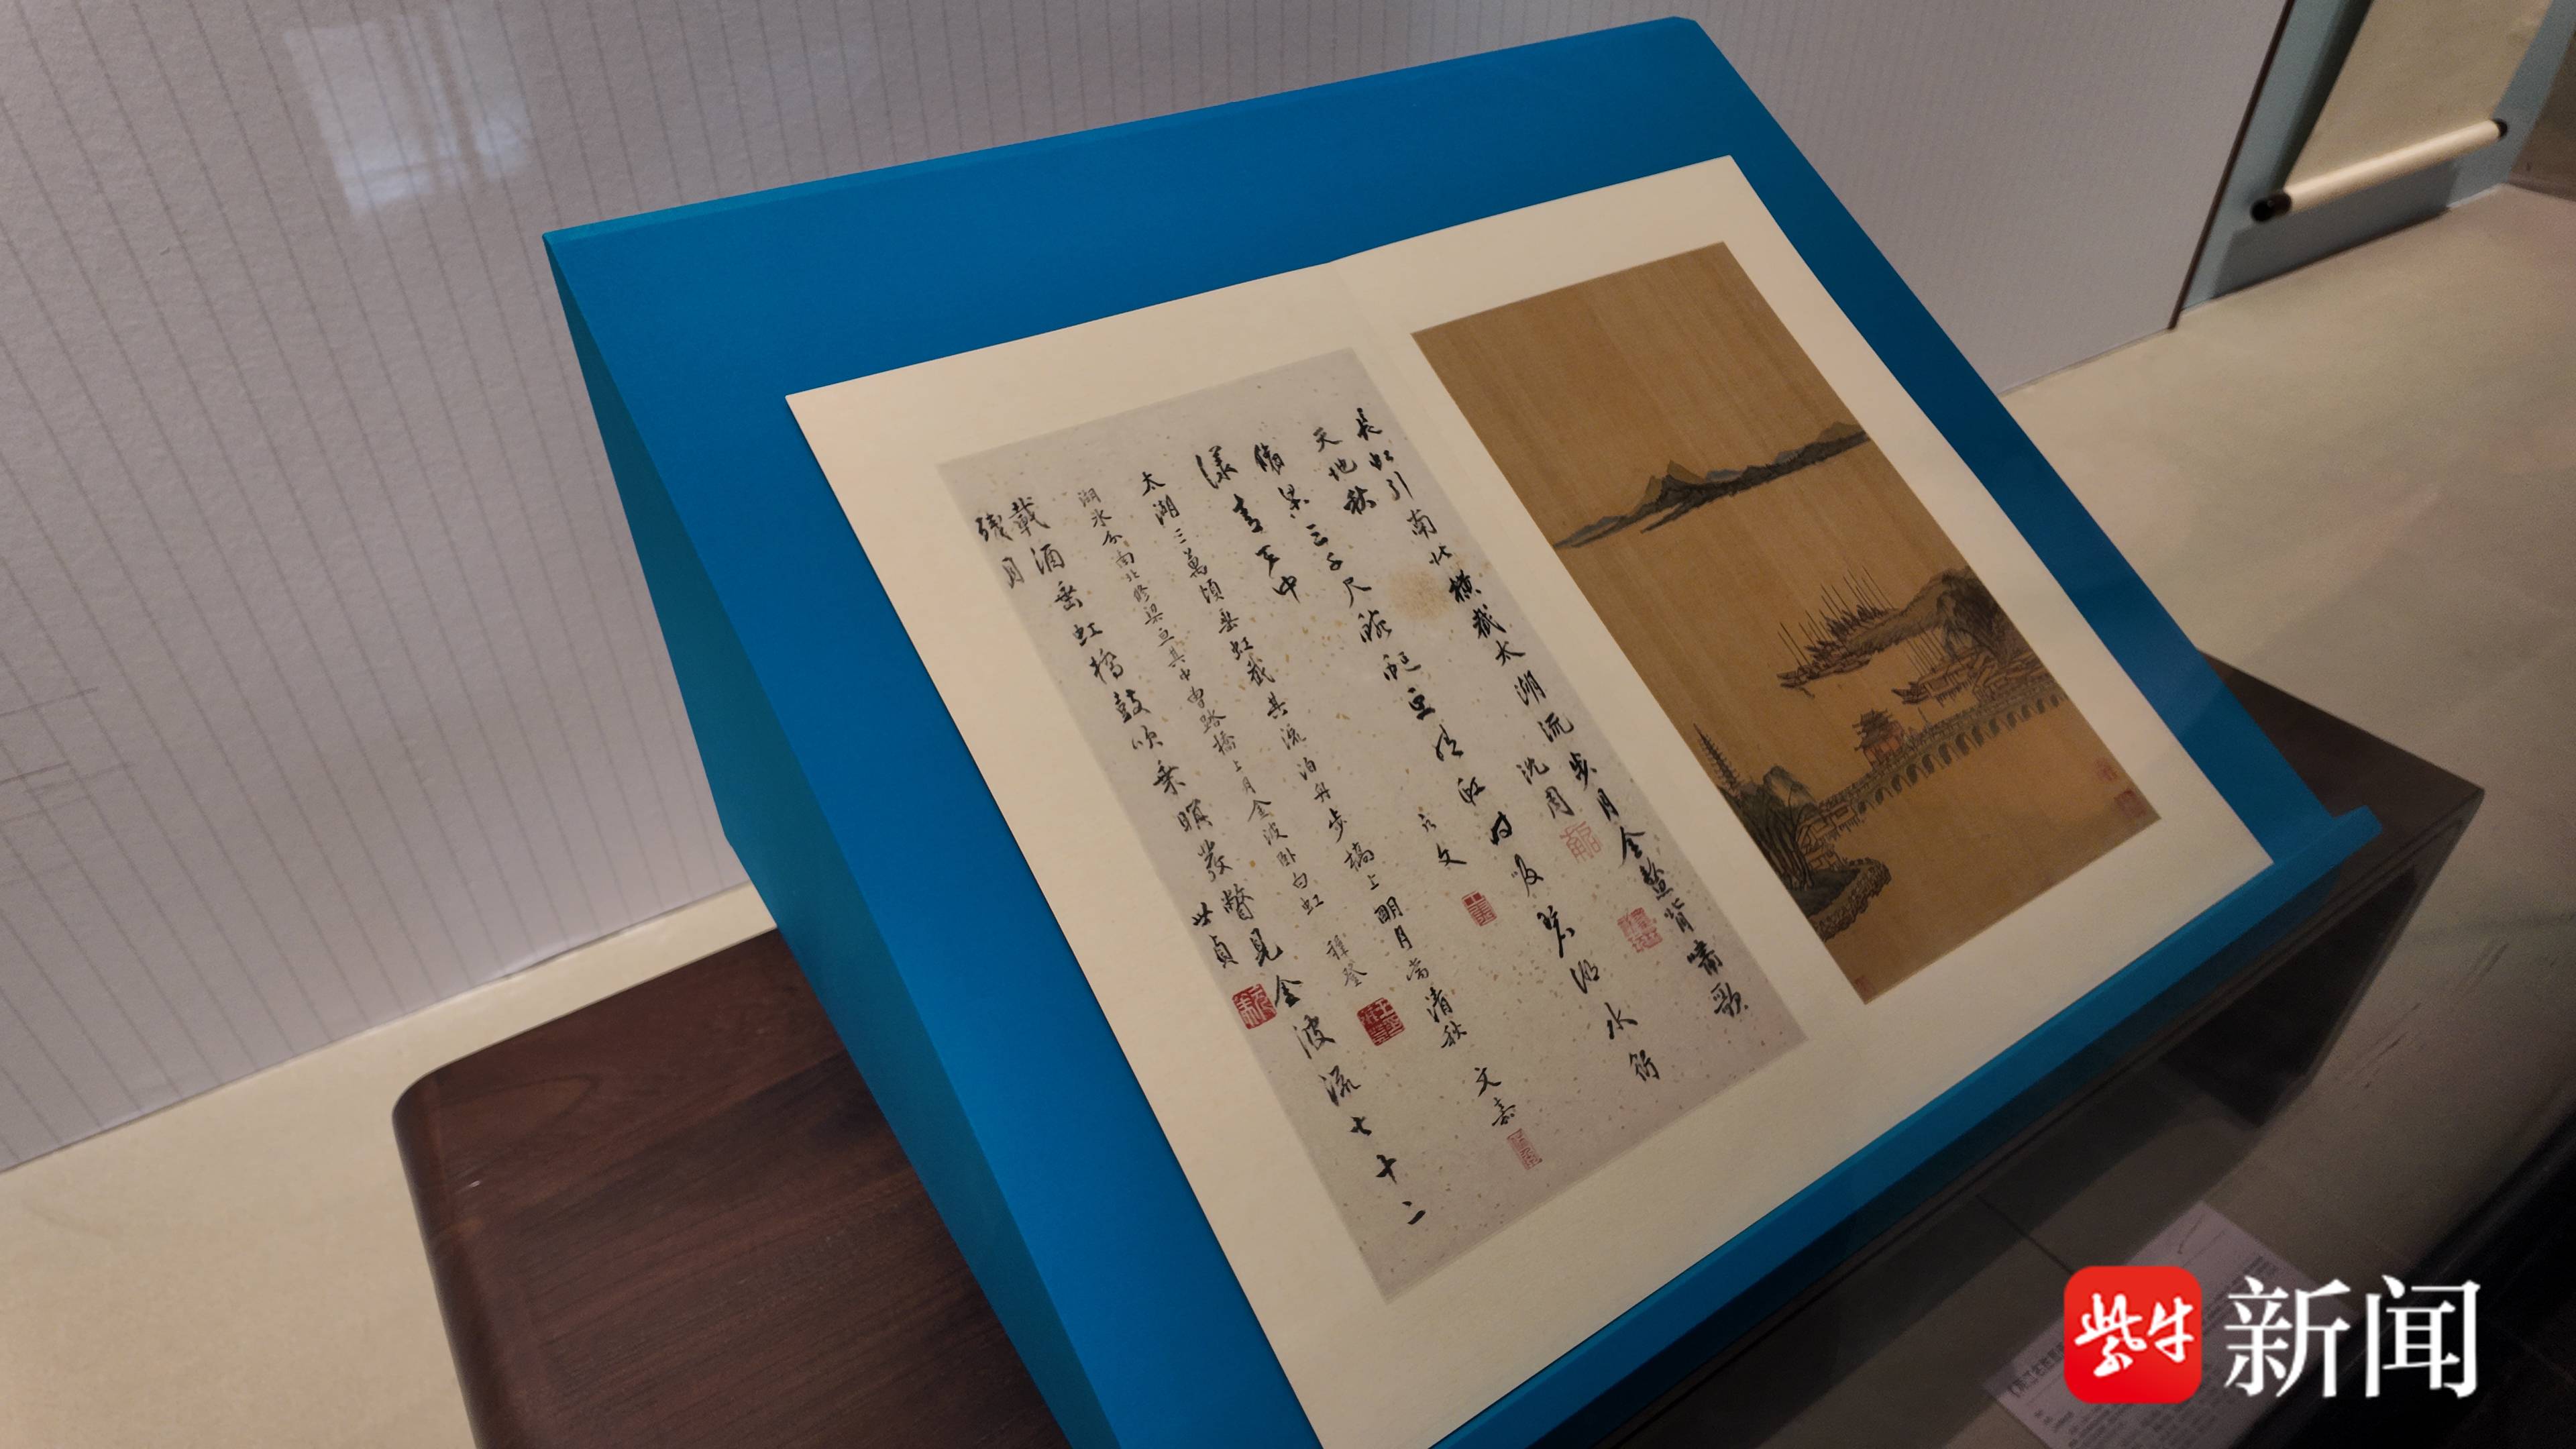 長虹引南北橫截太湖流步月金鰲背嘯歌
天地秋 沈周
梁三千尺蜿蜒亘晴虹時吸碧湖水
漾青天中
太湖三萬頃垂虹截其流泊舟步橋上明月當清秋 文嘉
湖水分南北修梁亘其中曾踏橋上月金波臥白虹 穉登
載酒垂虹橋鼓吹乘明發瞥見金波流七十二
殘月 世貞
紫牛新闻